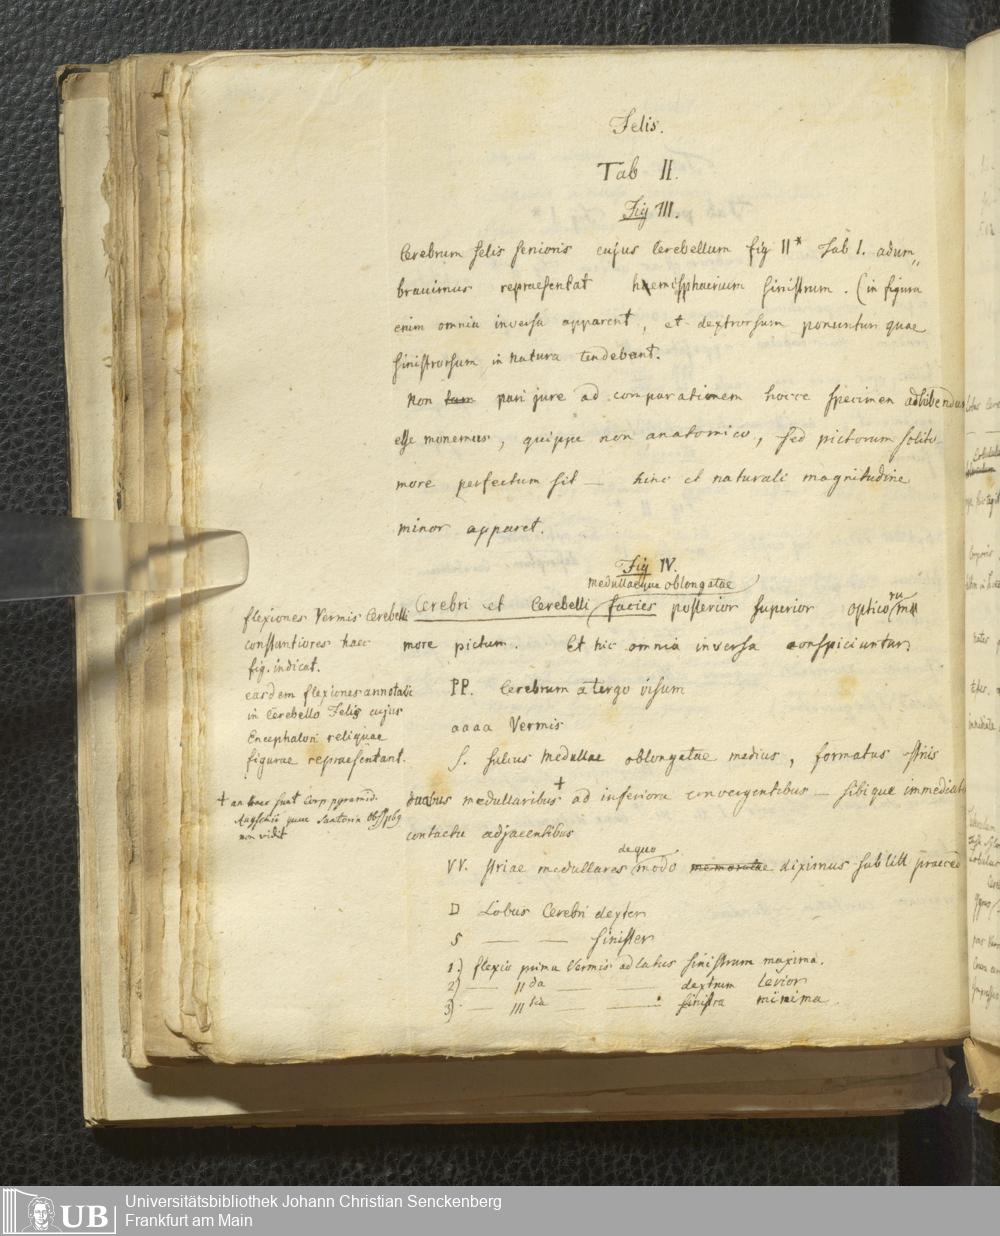 Felis.
Tab II.
Fig III.
Cerebrum Felis senioris cujus Cerebellum fig II* Tab I. adum„
bravimus repraesentat haemisphaerium sinistrum. (in figura
enim omnia inversa apparent, et dextrorsum ponuntur quae
sinistrorsum in natura tendebant.
Non tam pari jure ad comparationem hocce specimen adhibendum
esse monemus, quippe non anatomico, sed pictorum solito
more perfectum sit — hinc et naturali magnitudine
minor apparet.
Fig IV.
medullaeque oblongatae
Cerebri et Cerebelli facies posterior superior opticorum
more pictum. Et hic omnia inversa conspiciuntur
PP. Cerebrum a tergo visum
aaaa Vermis
S. sulcus Medullae oblongatae medius, formatus striis
duabus medullaribus + ad inferiora convergentibus — sibique immediato
contactu adjacentibus
de quo
VV. striae medullares modo memoratae diximus sub litt praeced
D Lobus Cerebri dexter
S — — sinister
1.) flexio prima Vermis ad latus sinistrum maxima.
2) — IIda — — dextrum levior
3) — IIItia — — sinistra minima.
flexiones Vermis Cerebelli
constantiores haec
fig. indicat.
easdem flexiones annotavi
in Cerebello Felis cujus
Encephalon reliquae
figurae repraesentant.
+ an haec sunt Corp pyramid.
quae Santorin
non vidit
Universitätsbibliothek Johann Christian Senckenberg
Frankfurt am Main
UB